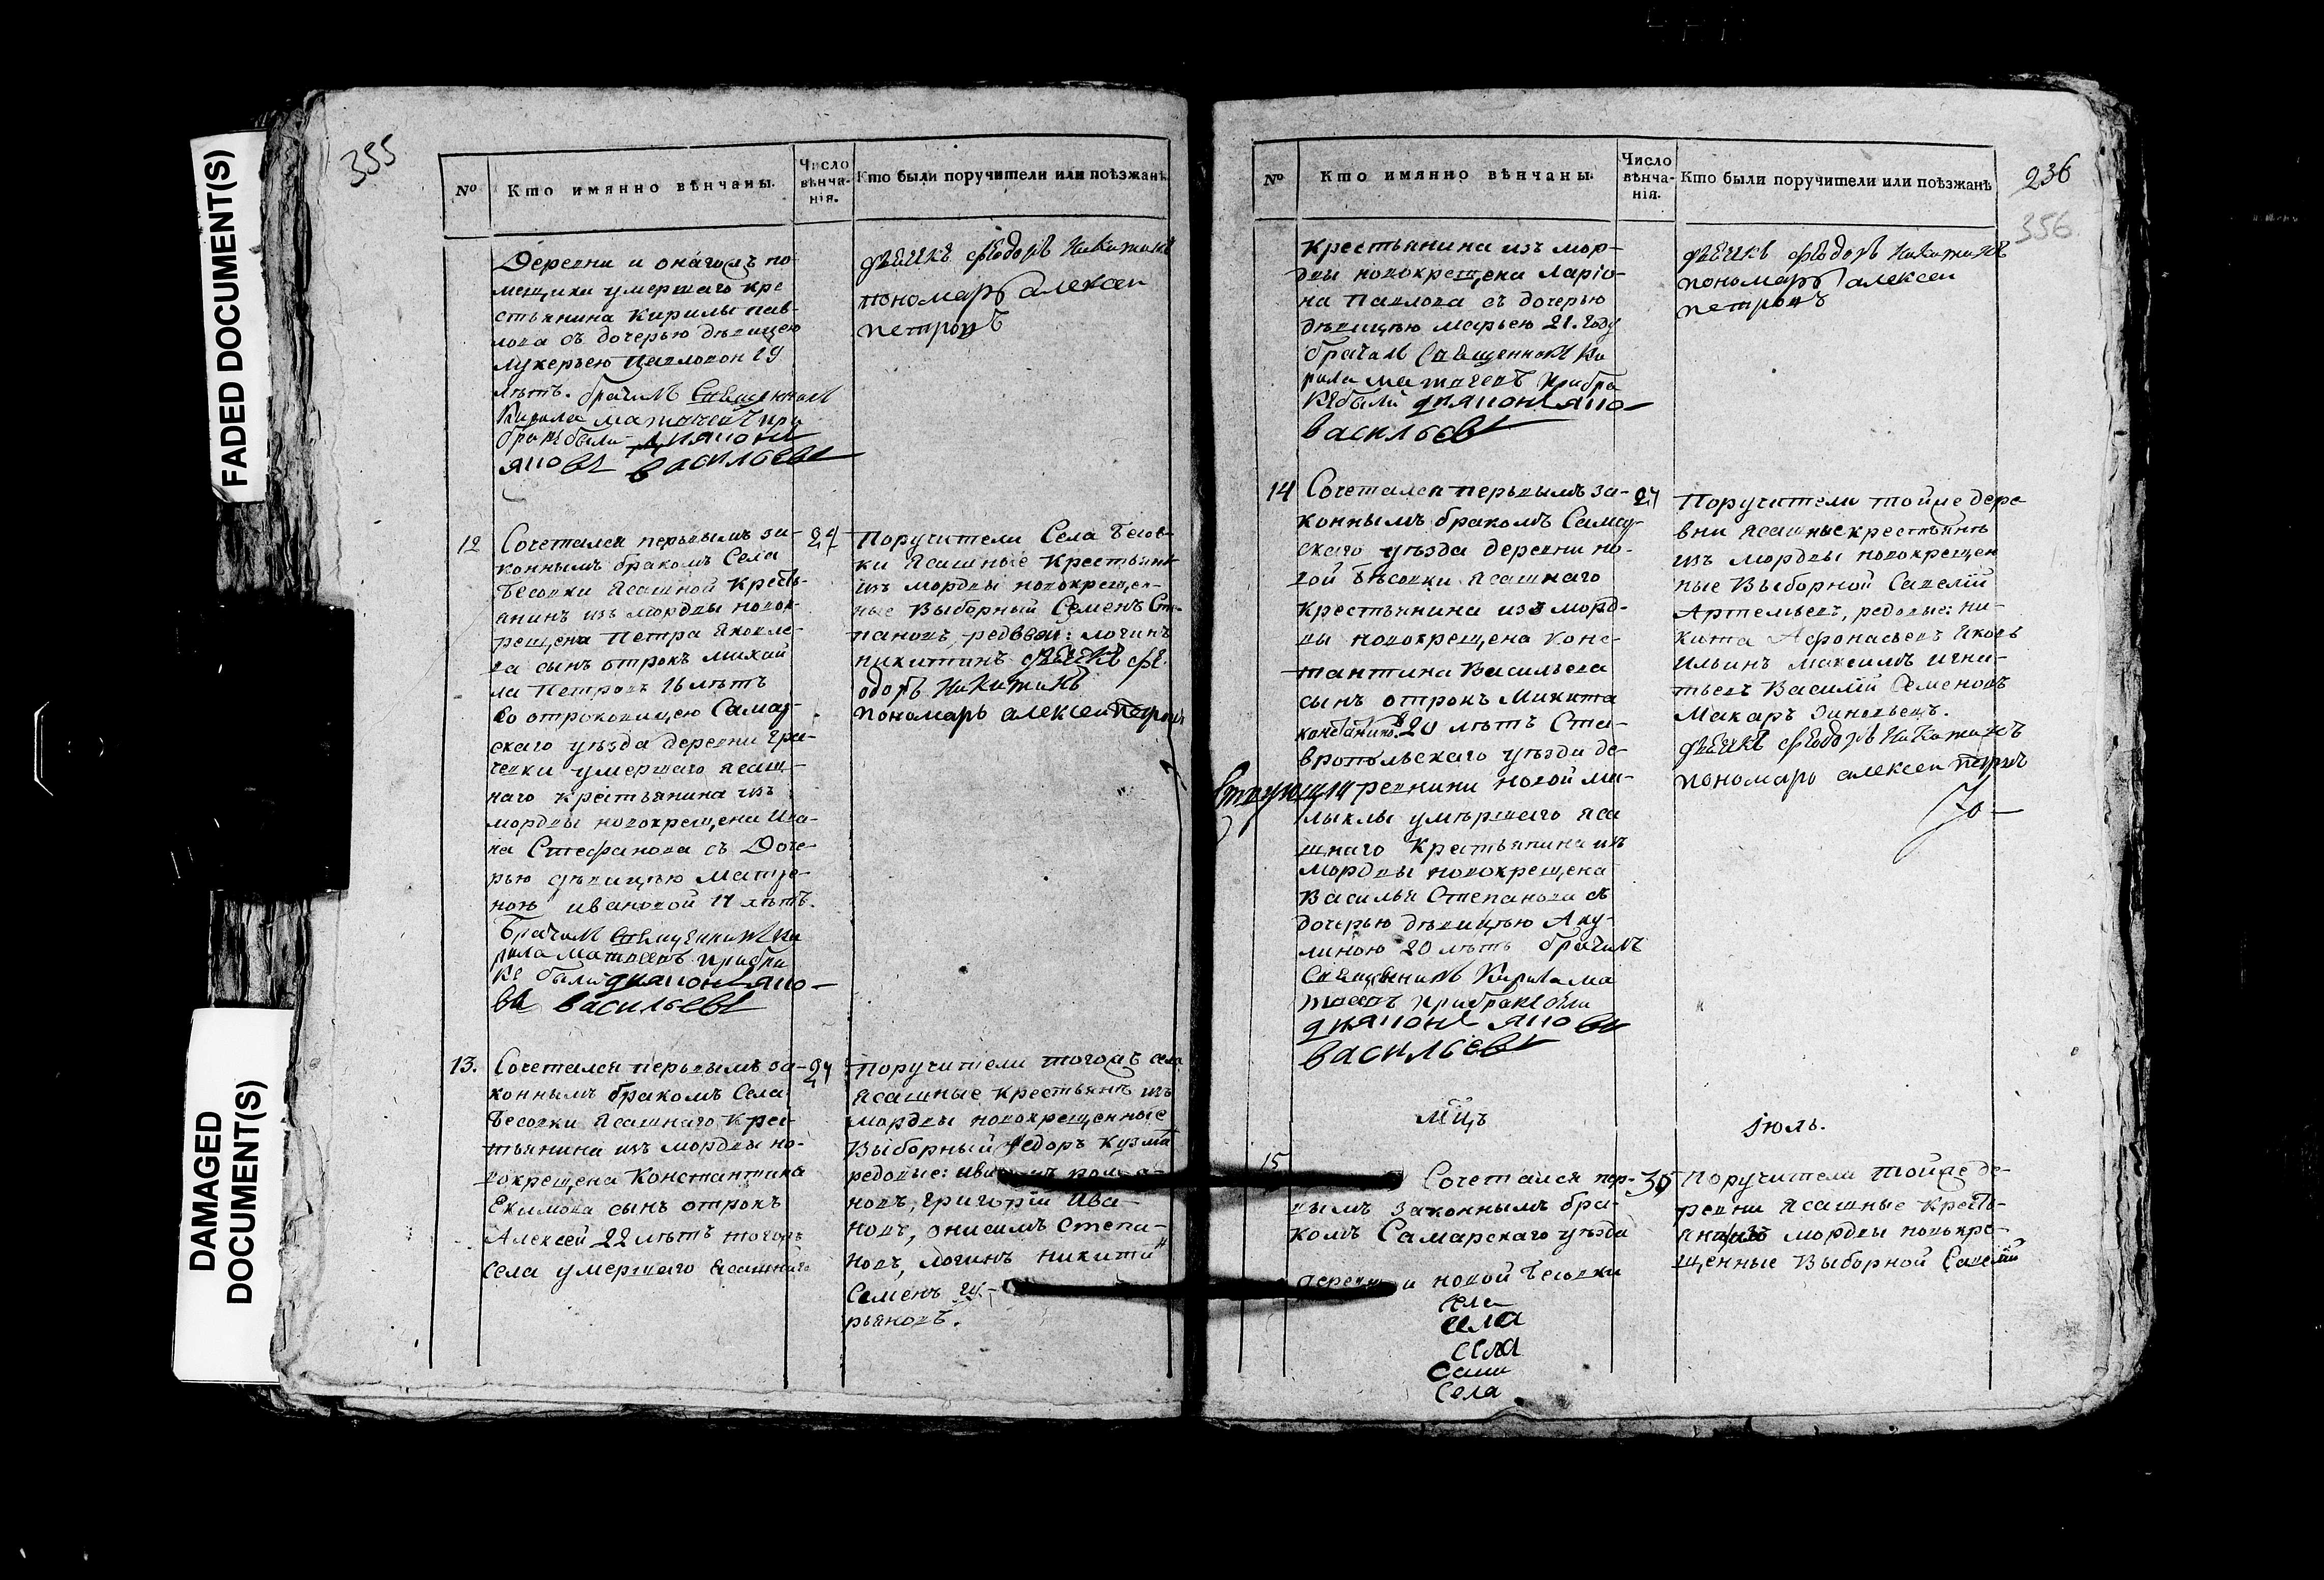 FADED DOCUMENT(S)
DAMAGED
DOCUMENT(S)
355
№
Кто имянно вѣнчаны.
Число
вѣнча-
нія.
Кто были поручители или поѣзжанѣ
Деревни и онагожъ по-
мещика умершаго кре
стьянина Кирилы пав-
лова съ дочерью дѣвицею
Лукерьею Павловои 19
лѣтъ. брачилъ Священникъ
Кирила матвеевъ при
браке были
Васильевы
дьячекъ Ѳеодоръ Никитинъ
пономарь алексеи
петровъ
12
Сочетался первымъ за-
коннымъ бракомъ Села
Бесовки Ясашной Кресть-
янинъ изъ мордвы новок-
рещена Петра Яковле-
ва сынъ отрокъ Михай
ла Петровъ 16 лѣтъ
Со отроковицею Самар-
скаго уѣзда деревни Гра-
чевки умершаго ясаш-
наго крестьянина изъ
мордвы новокрещена Ива-
на Стефанова съ Доче-
рью дѣвицѣю Матре-
ною ивановой 17 лѣтъ.
Брачилъ Священникъ Ки
рила Матвеевъ при бра
ке были
васильевы
24
Поручители Села Бесов-
ки Ясашные Крестьяне
изъ мордвы новокрещен-
ные Выборный Семенъ Сте-
пановъ, редовои: логинъ
никитинъ дьячекъ Ѳе-
одоръ Никитинъ
пономарь алексеи петровъ
13.
Сочетался первымъ за-
коннымъ бракомъ Села
Бесовки Ясашнаго Крес-
тьянина изъ мордвы но-
вокрещена Константина
Екимова сынъ отрокъ
Алексей 22 лѣтъ тогожъ
села умершаго Ясашнаго
24
Поручители тогожъ села
Ясашные крестьянѣ изъ
мордвы новокрещенные
Выборный Федоръ Кузми
редовые:
новъ, Григорій Ива-
новъ, онисимъ Степа-
новъ, логинъ никитин
Семенъ
рьяновъ.
№
Кто имянно вѣнчаны.
Число
вѣнча-
нія.
Кто были поручители или поѣзжанѣ
236
356.
крестьянина изъ мор-
двы новокрещена Ларіо-
на Павлова съ дочерью
дѣвицѣю Марьею 21. году
брачилъ Священникъ Ки
рила матвеевъ при бра
кѣ были
васильевы
дьячекъ Ѳеодоръ Никитинъ
пономарь алексеи
петровъ
14
Сочетался первымъ за-
коннымъ бракомъ Самар-
скаго уѣзда деревни но-
вой Бѣсовки Ясашнаго
крестьянина изъ морд-
вы новокрещена Конс-
тантина Васильева
сынъ отрокъ Микита
20 лѣтъ Ста-
вропольскаго уѣзда де-
ревнини новой ма-
лыклы умѣршаго Яса
шнаго Крестьянина изъ
мордвы новокрещена
Василья Степанова съ
дочерью дѣвицѣю Аку-
линою 20 лѣтъ брачилъ
Священникъ Кирила ма
твеевъ при браке были
васильевы
24
Поручители тойже дере
вни Ясашные крестьянѣ
изъ мордвы новокрещен
ные Выборной Савелій
Артемьевъ, редовые: ни-
кита Афонасьевъ Яковъ
Ильинъ максимъ игна-
тьевъ Василій Семеновъ
Макаръ Зиновьевъ.
дьячекъ Ѳеодоръ Никитинъ
пономарь алексеи петровъ
мцъ
Іюль.
15
Сочетался пер-
вымъ законнымъ бра-
комъ Самарскаго уѣзда
деревни новой Бесовки
30
Поручители тойже де-
ревни Ясашные Кресть-
яне изъ мордвы новокре-
щенные Выборной Савелій
села
села
села
Села